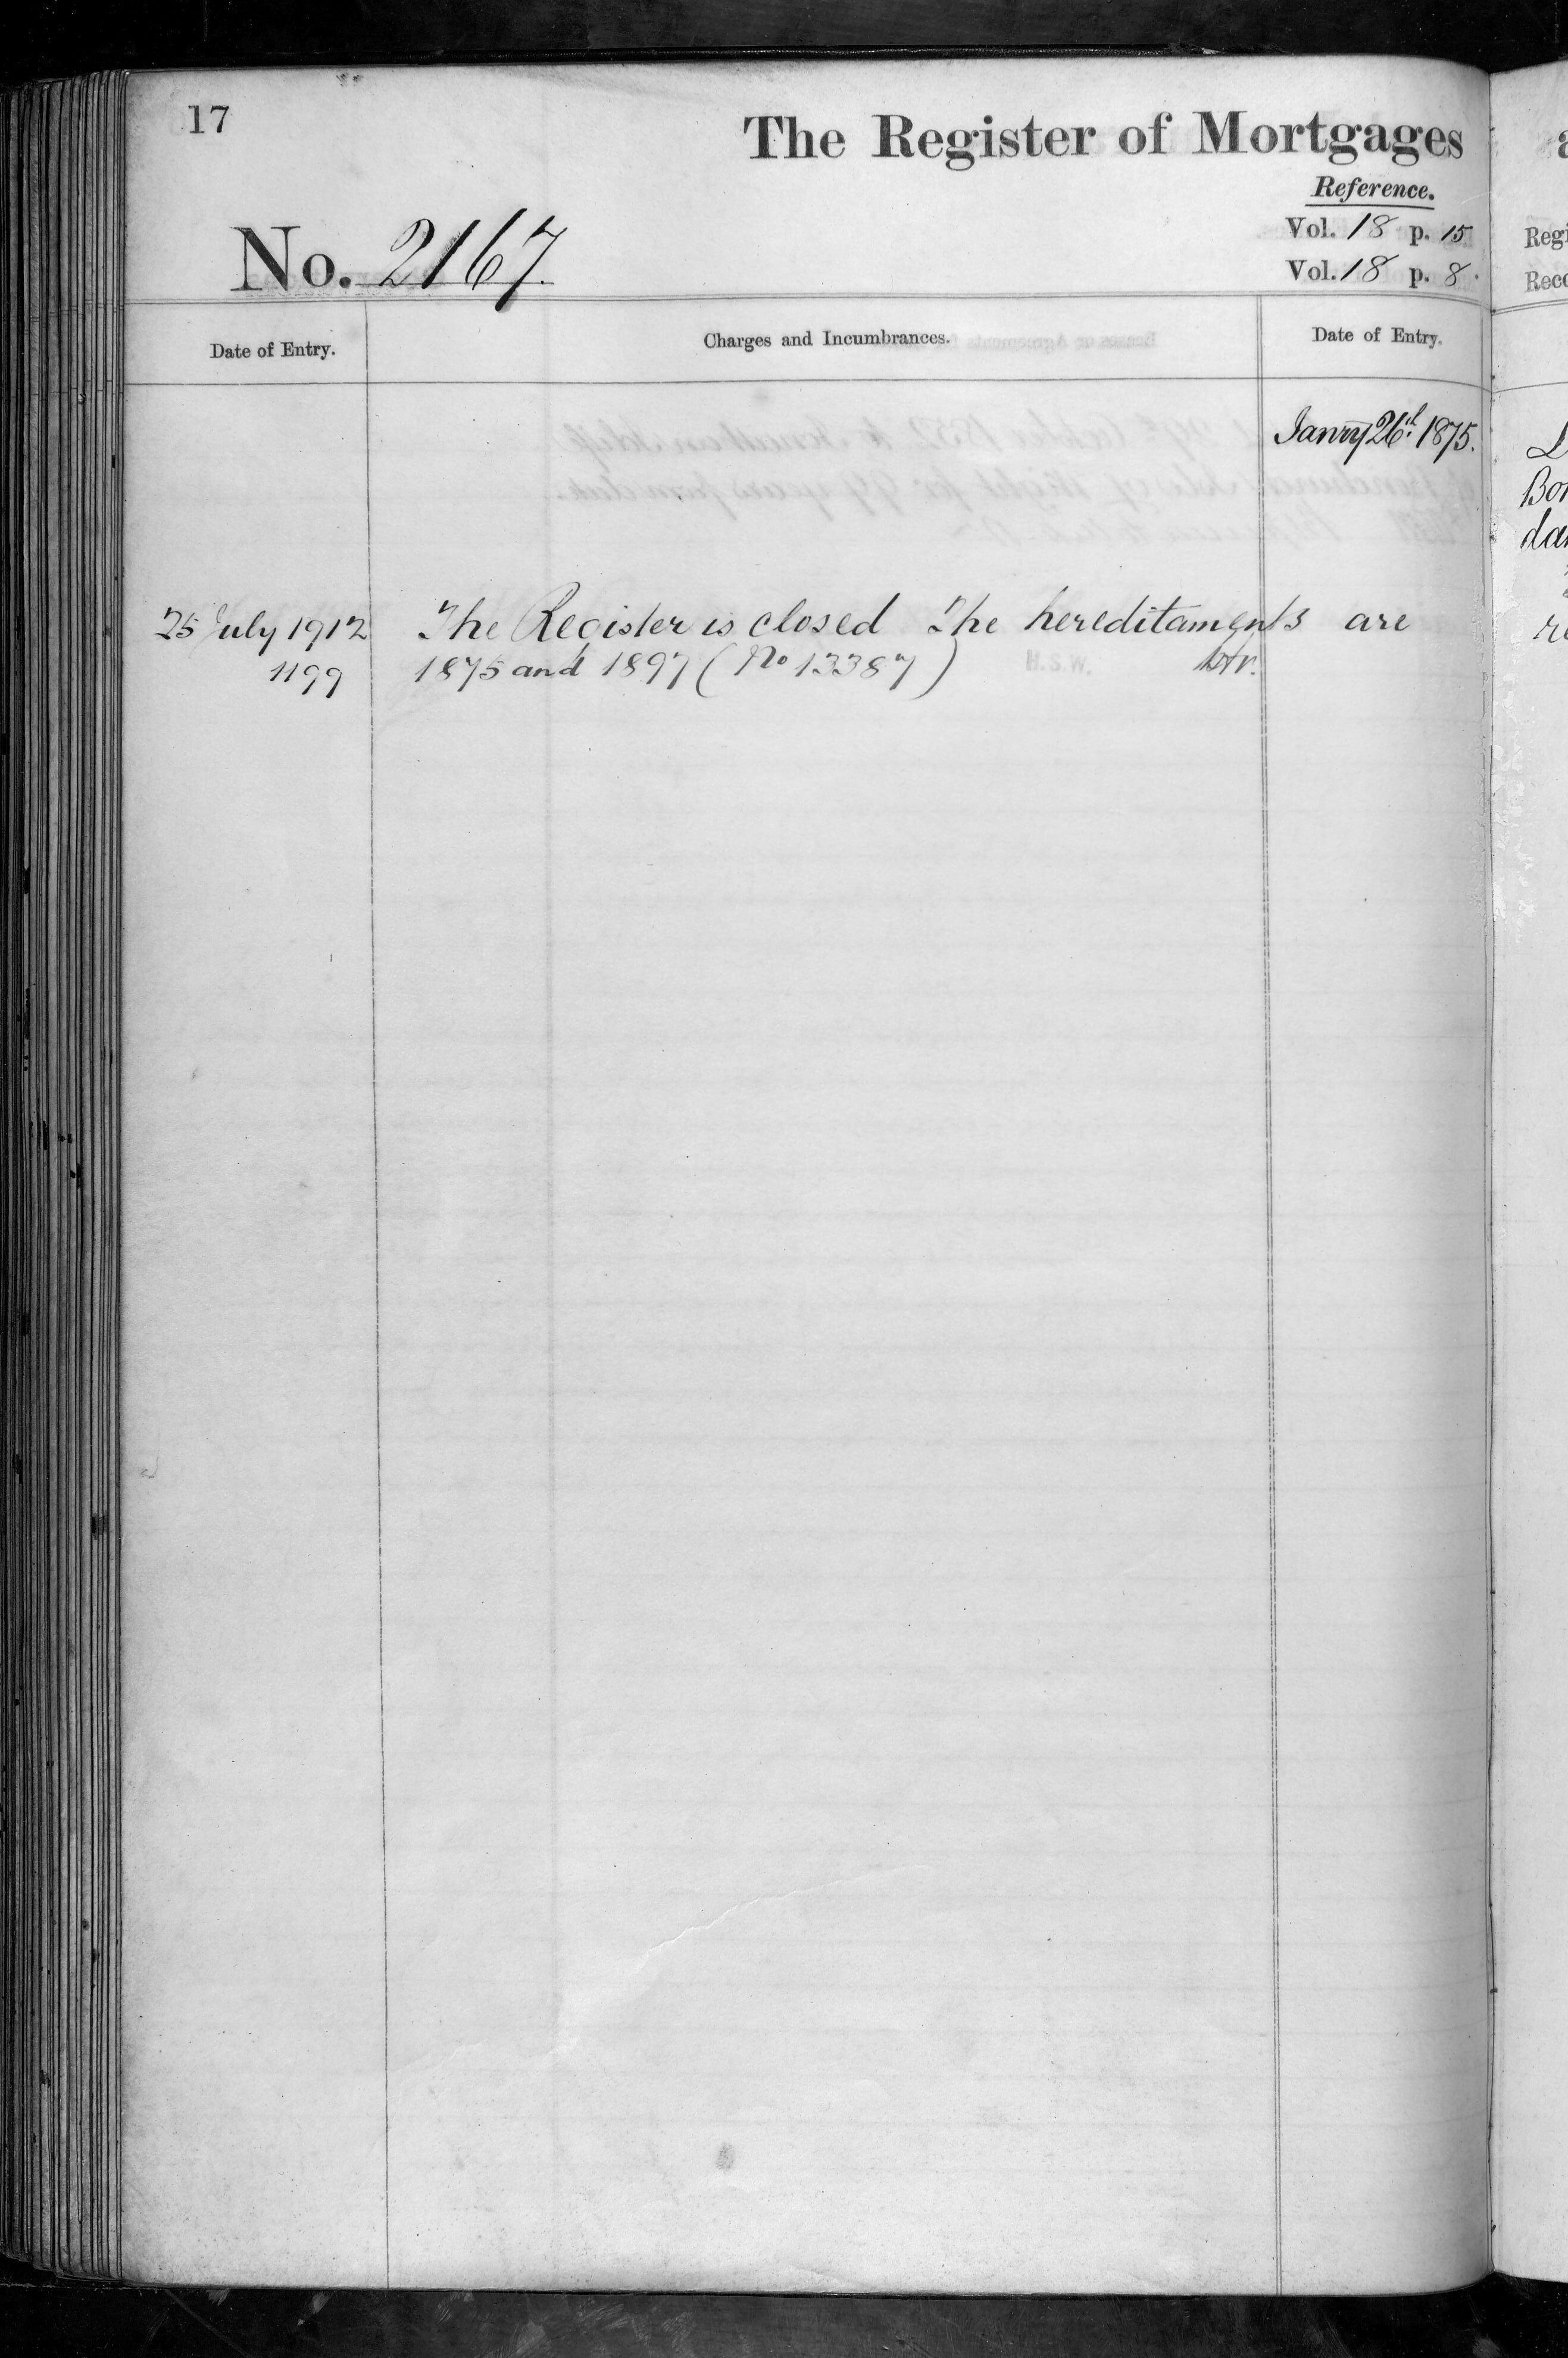 17
The Register of Mortgages
Reference.
No. 2167.
Vol. 18 p. 15
Vol. 18 p. 8.
Regi
Reco
Date of Entry.
Charges and Incumbrances.
Date of Entry.
Janry 26th 1875.
Bon
dan
25 July 1912 The Register is closed The hereditaments are
1199 1875 and 1897 (No 13387) H.S.W.